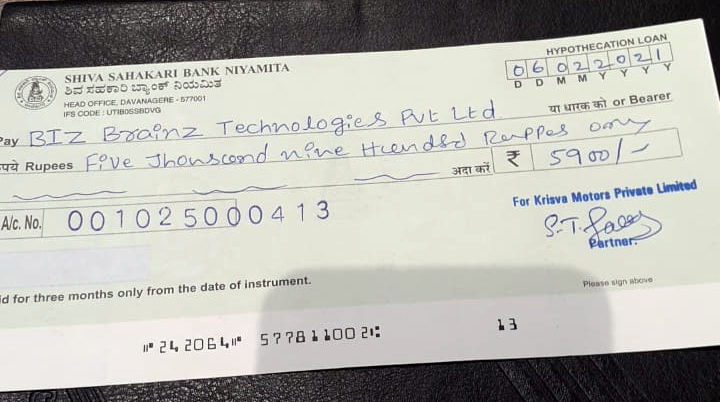 SHIVA SAHAKARI BANK NIYAMITA
ಶಿವ ಸಹಕಾರಿ ಬ್ಯಾಂಕ್ ನಿಯಮಿತ
HEAD OFFICE, DAVANAGERE - 577001
IFS CODE : UTIB0SSBDVG
HYPOTHECATION LOAN
06022021
D D M M Y Y Y Y
Pay BIZ Brainz Technologies Pvt Ltd या धारक को or Bearer
रुपये Rupees Five Thousand nine Hundred Ruppes only
अदा करें ₹ 5900/-
A/c. No. 001025000413
For Krisva Motors Private Limited
Partner.
Please sign above
id for three months only from the date of instrument.
⑈242064⑈ 577811002⑆ 13